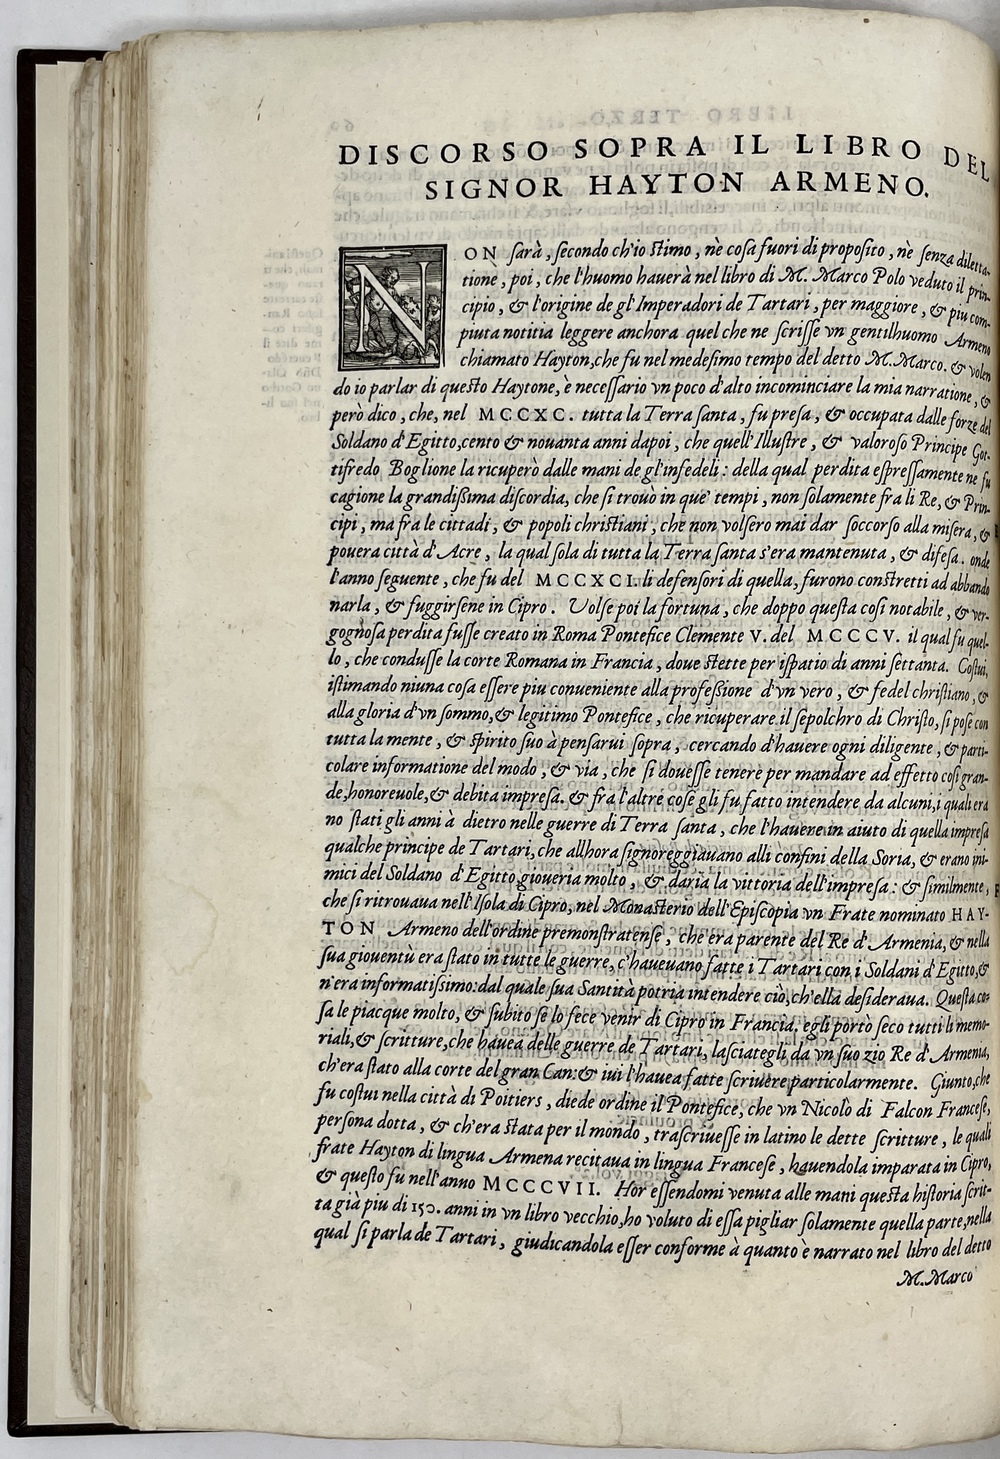 DISCORSO SOPRA IL LIBRO DEL
SIGNOR HAYTON ARMENO.
NON ſarà, ſecondo ch'io ſtimo, nè coſa fuori di propoſito, nè ſenza diletta-
tione, poi, che l'huomo hauerà nel libro di M. Marco Polo veduto il prin-
cipio, & l'origine de gl'Imperadori de Tartari, per maggiore, & piu com-
piuta notitia leggere anchora quel che ne ſcriſſe vn gentilhuomo Armeno
chiamato Hayton, che fu nel medeſimo tempo del detto M. Marco. & volen
do io parlar di queſto Haytone, è neceſſario vn poco d'alto incominciare la mia narratione, &
però dico, che, nel MCCXC. tutta la Terra ſanta, fu preſa, & occupata dalle forze del
Soldano d'Egitto, cento & nouanta anni dapoi, che quell'Illuſtre, & valoroſo Principe Got-
tifredo Boglione la ricuperò dalle mani de gl'infedeli: della qual perdita eſpreſſamente ne fu
cagione la grandißima diſcordia, che ſi trouò in que' tempi, non ſolamente fra li Re, & Prin-
cipi, ma fra le cittadi, & popoli chriſtiani, che non volſero mai dar ſoccorſo alla miſera, &
pouera città d'Acre, la qual ſola di tutta la Terra ſanta s'era mantenuta, & difeſa. onde
l'anno ſeguente, che fu del MCCXCI. li defenſori di quella, furono conſtretti ad abbando
narla, & fuggirſene in Cipro. Volſe poi la fortuna, che doppo queſta coſi notabile, & ver-
gognoſa perdita fuſſe creato in Roma Pontefice Clemente V. del MCCCV. il qual fu quel-
lo, che conduſſe la corte Romana in Francia, doue ſtette per iſpatio di anni ſettanta. Coſtui,
iſtimando niuna coſa eſſere piu conueniente alla profeßione d'vn vero, & fedel chriſtiano, &
alla gloria d'vn ſommo, & legitimo Pontefice, che ricuperare il ſepolchro di Chriſto, ſi poſe con
tutta la mente, & ſpirito ſuo à penſarui ſopra, cercando d'hauere ogni diligente, & parti-
colare informatione del modo, & via, che ſi doueſſe tenere per mandare ad effetto coſi gran-
de, honoreuole, & debita impreſa. & fra l'altre coſe gli fu fatto intendere da alcuni, i quali era
no ſtati gli anni à dietro nelle guerre di Terra ſanta, che l'hauere in aiuto di quella impreſa
qualche principe de Tartari, che allhora ſignoreggiauano alli confini della Soria, & erano ini-
mici del Soldano d'Egitto gioueria molto, & daria la vittoria dell'impreſa: & ſimilmente,
che ſi ritrouaua nell'Iſola di Cipro, nel Monaſterio dell'Epiſcopia vn Frate nominato HAY-
TON Armeno dell'ordine premonſtratenſe, che era parente del Re d'Armenia, & nella
ſua giouentù era ſtato in tutte le guerre, c'haueuano fatte i Tartari con i Soldani d'Egitto, &
n'era informatißimo: dal quale ſua Santità potria intendere ciò, ch'ella deſideraua. Queſta co-
ſa le piacque molto, & ſubito ſe lo fece venir di Cipro in Francia, egli portò ſeco tutti li memo-
riali, & ſcritture, che hauea delle guerre de Tartari, laſciategli da vn ſuo zio Re d'Armenia,
ch'era ſtato alla corte del gran Can: & iui l'hauea fatte ſcriuere particolarmente. Giunto, che
fu coſtui nella città di Poitiers, diede ordine il Pontefice, che vn Nicolò di Falcon Franceſe,
perſona dotta, & ch'era ſtata per il mondo, traſcriueſſe in latino le dette ſcritture, le quali
frate Hayton di lingua Armena recitaua in lingua Franceſe, hauendola imparata in Cipro,
& queſto fu nell'anno MCCCVII. Hor eſſendomi venuta alle mani queſta hiſtoria ſcrit-
ta già piu di 150. anni in vn libro vecchio, ho voluto di eſſa pigliar ſolamente quella parte, nella
qual ſi parla de Tartari, giudicandola eſſer conforme à quanto è narrato nel libro del detto
M. Marco